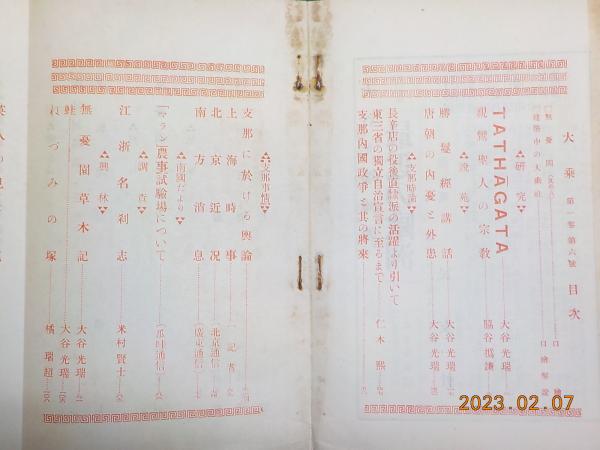 大乘 第一卷第六號 目次
無憂園
建築中の大乘社
口繪
研究
TATHAGATA
大谷光瑞
親鸞聖人の宗教
脇谷撝謙
說苑
勝鬘經講話
大谷光瑞
唐朝の內憂と外患
大谷光瑞
支那時論
長辛店の役後直隸派の活躍より引いて
東三省の獨立自治宣言に至るまで
支那內國政爭と其の將來
仁木熙
支那事情
支那に於ける輿論
上海時事
一記者
北京近況
(北京通信)
南方消息
(廣東通信)
南國だより
農事試驗場について
調査
江浙名刹志
米村賢士
興林
無憂園草木記
大谷光瑞
蛙
大谷光瑞
ねづみの塚
橘瑞超
2023.02.07